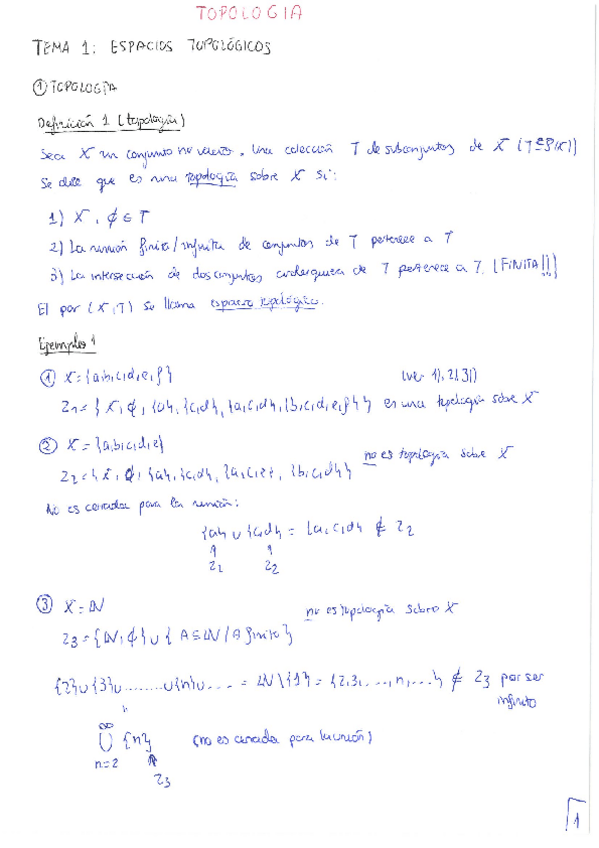 TOPOLOGIA
TEMA 1: ESPACIOS TOPOLÓGICOS
① TOPOLOGÍA
Definición 1 (topología)
Sea X un conjunto no vacío. Una colección T de subconjuntos de X (T⊆P(X))
se dice que es una topología sobre X si:
1) X, ∅ ∈ T
2) La reunión finita/infinita de conjuntos de T pertenece a T
3) La intersección de dos conjuntos cualesquiera de T pertenece a T. (FINITA!!)
El par (X,T) se llama espacio topológico.
Ejemplos 1
① X={a,b,c,d,e,f} (ver 1), 2), 3))
Z₁ = {X, ∅, {a}, {c,d}, {a,c,d}, {b,c,d,e,f}} es una topología sobre X
② X={a,b,c,d,e} no es topología sobre X
Z₂ = {X, ∅, {a}, {c,d}, {a,c,e}, {b,c,d}}
No es cerrada para la reunión:
{a} ∪ {c,d} = {a,c,d} ∉ Z₂
Z₂ Z₂
③ X=ℕ no es topología sobre X
Z₃ = {ℕ, ∅} ∪ {A⊆ℕ / A finito}
{2}∪{3}∪........∪{n}∪.... = ℕ\{1} = {2,3,...,n,...} ∉ Z₃ por ser
infinito
∞
∪ {n} (no es cerrada para la unión)
n=2
Z₃
1